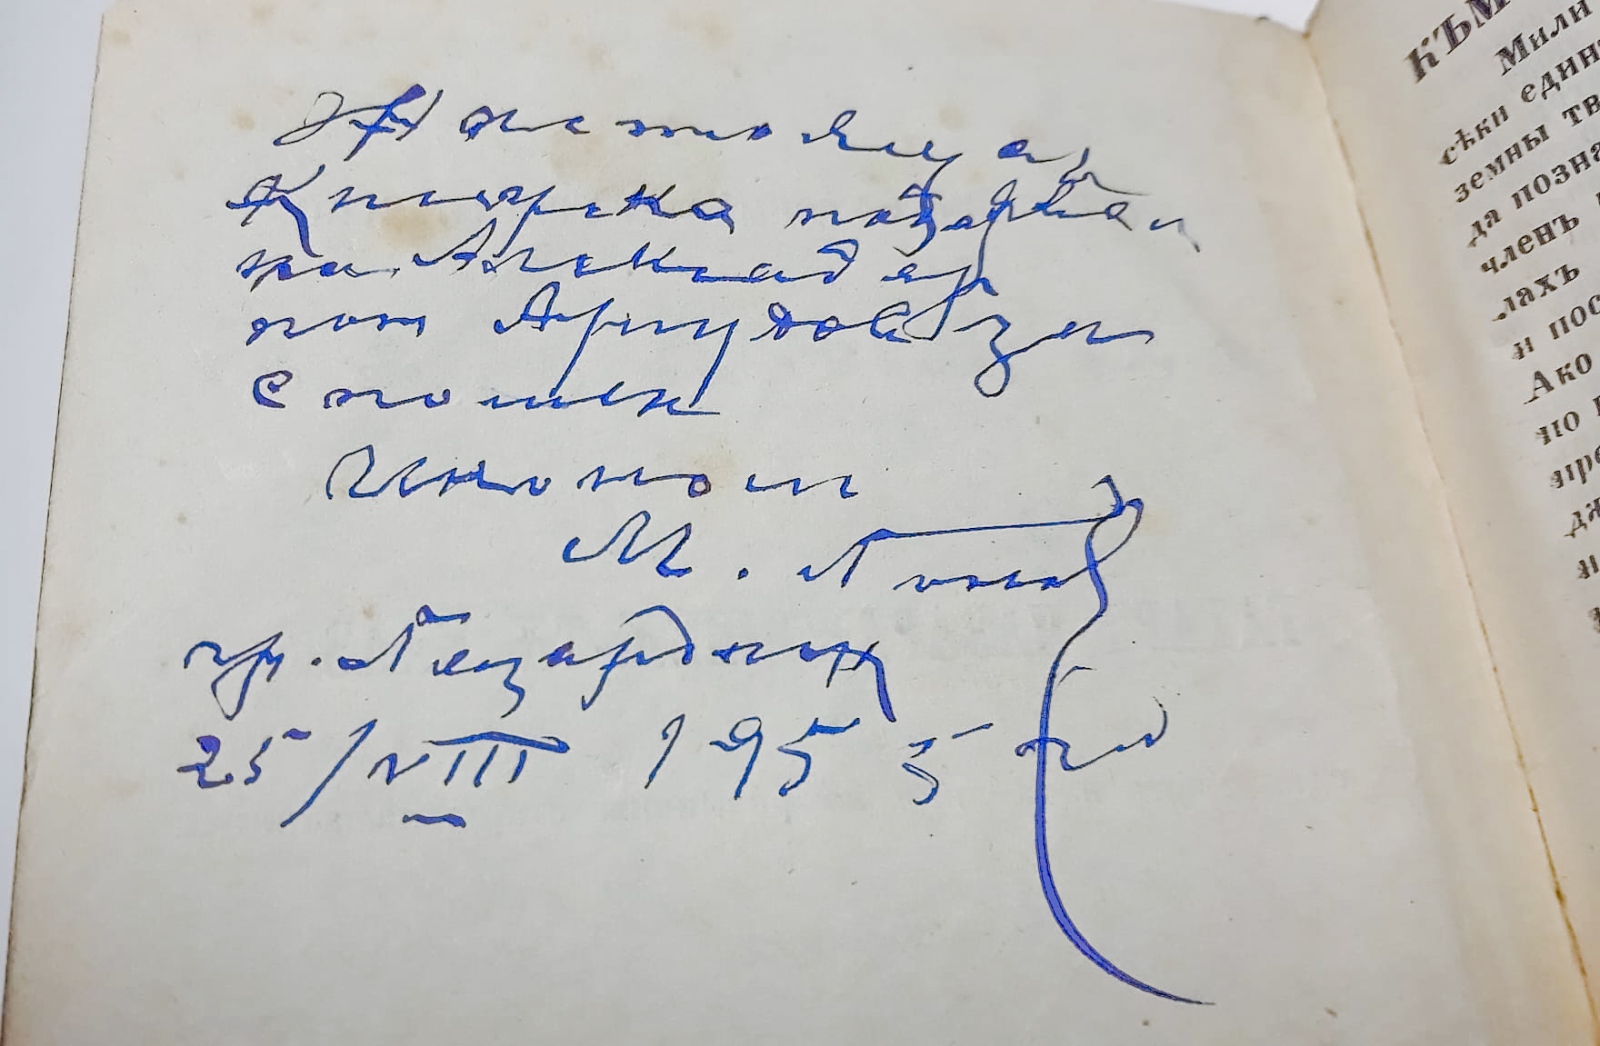 Настоящая
Книжка подарвам
на Алексадър
поп Ариудов за
спомен
Иконом
М. Попов
гр. Пазарджик
25/VIII 1955 год
КЪМ
Мили
сѣки един
земны тв
да позна
членъ
лахъ
и пос
Ако
но
пре